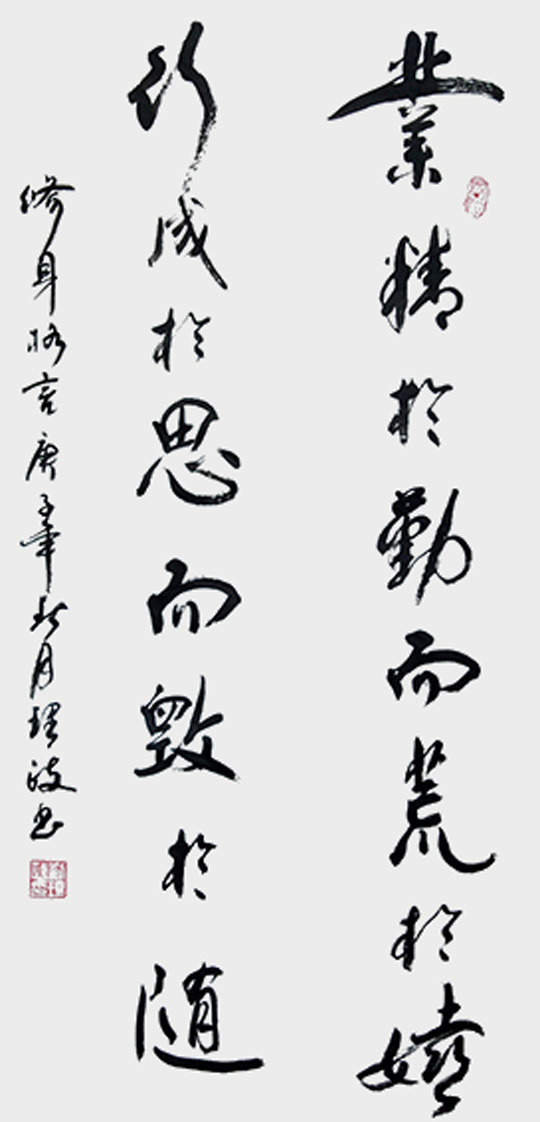 業精於勤而荒於嬉
行成於思而毀於随
修身格言庚子年秋月理波书